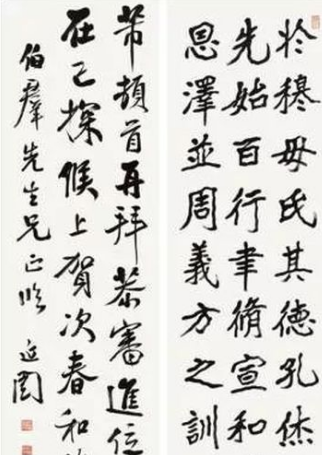 於穆毋氏其德孔烋
先始百行聿脩宣和
恩澤並周義方之訓
芾頓首再拜恭審進位
在已探候上賀次春和
伯羣先生兄正臨 延闓